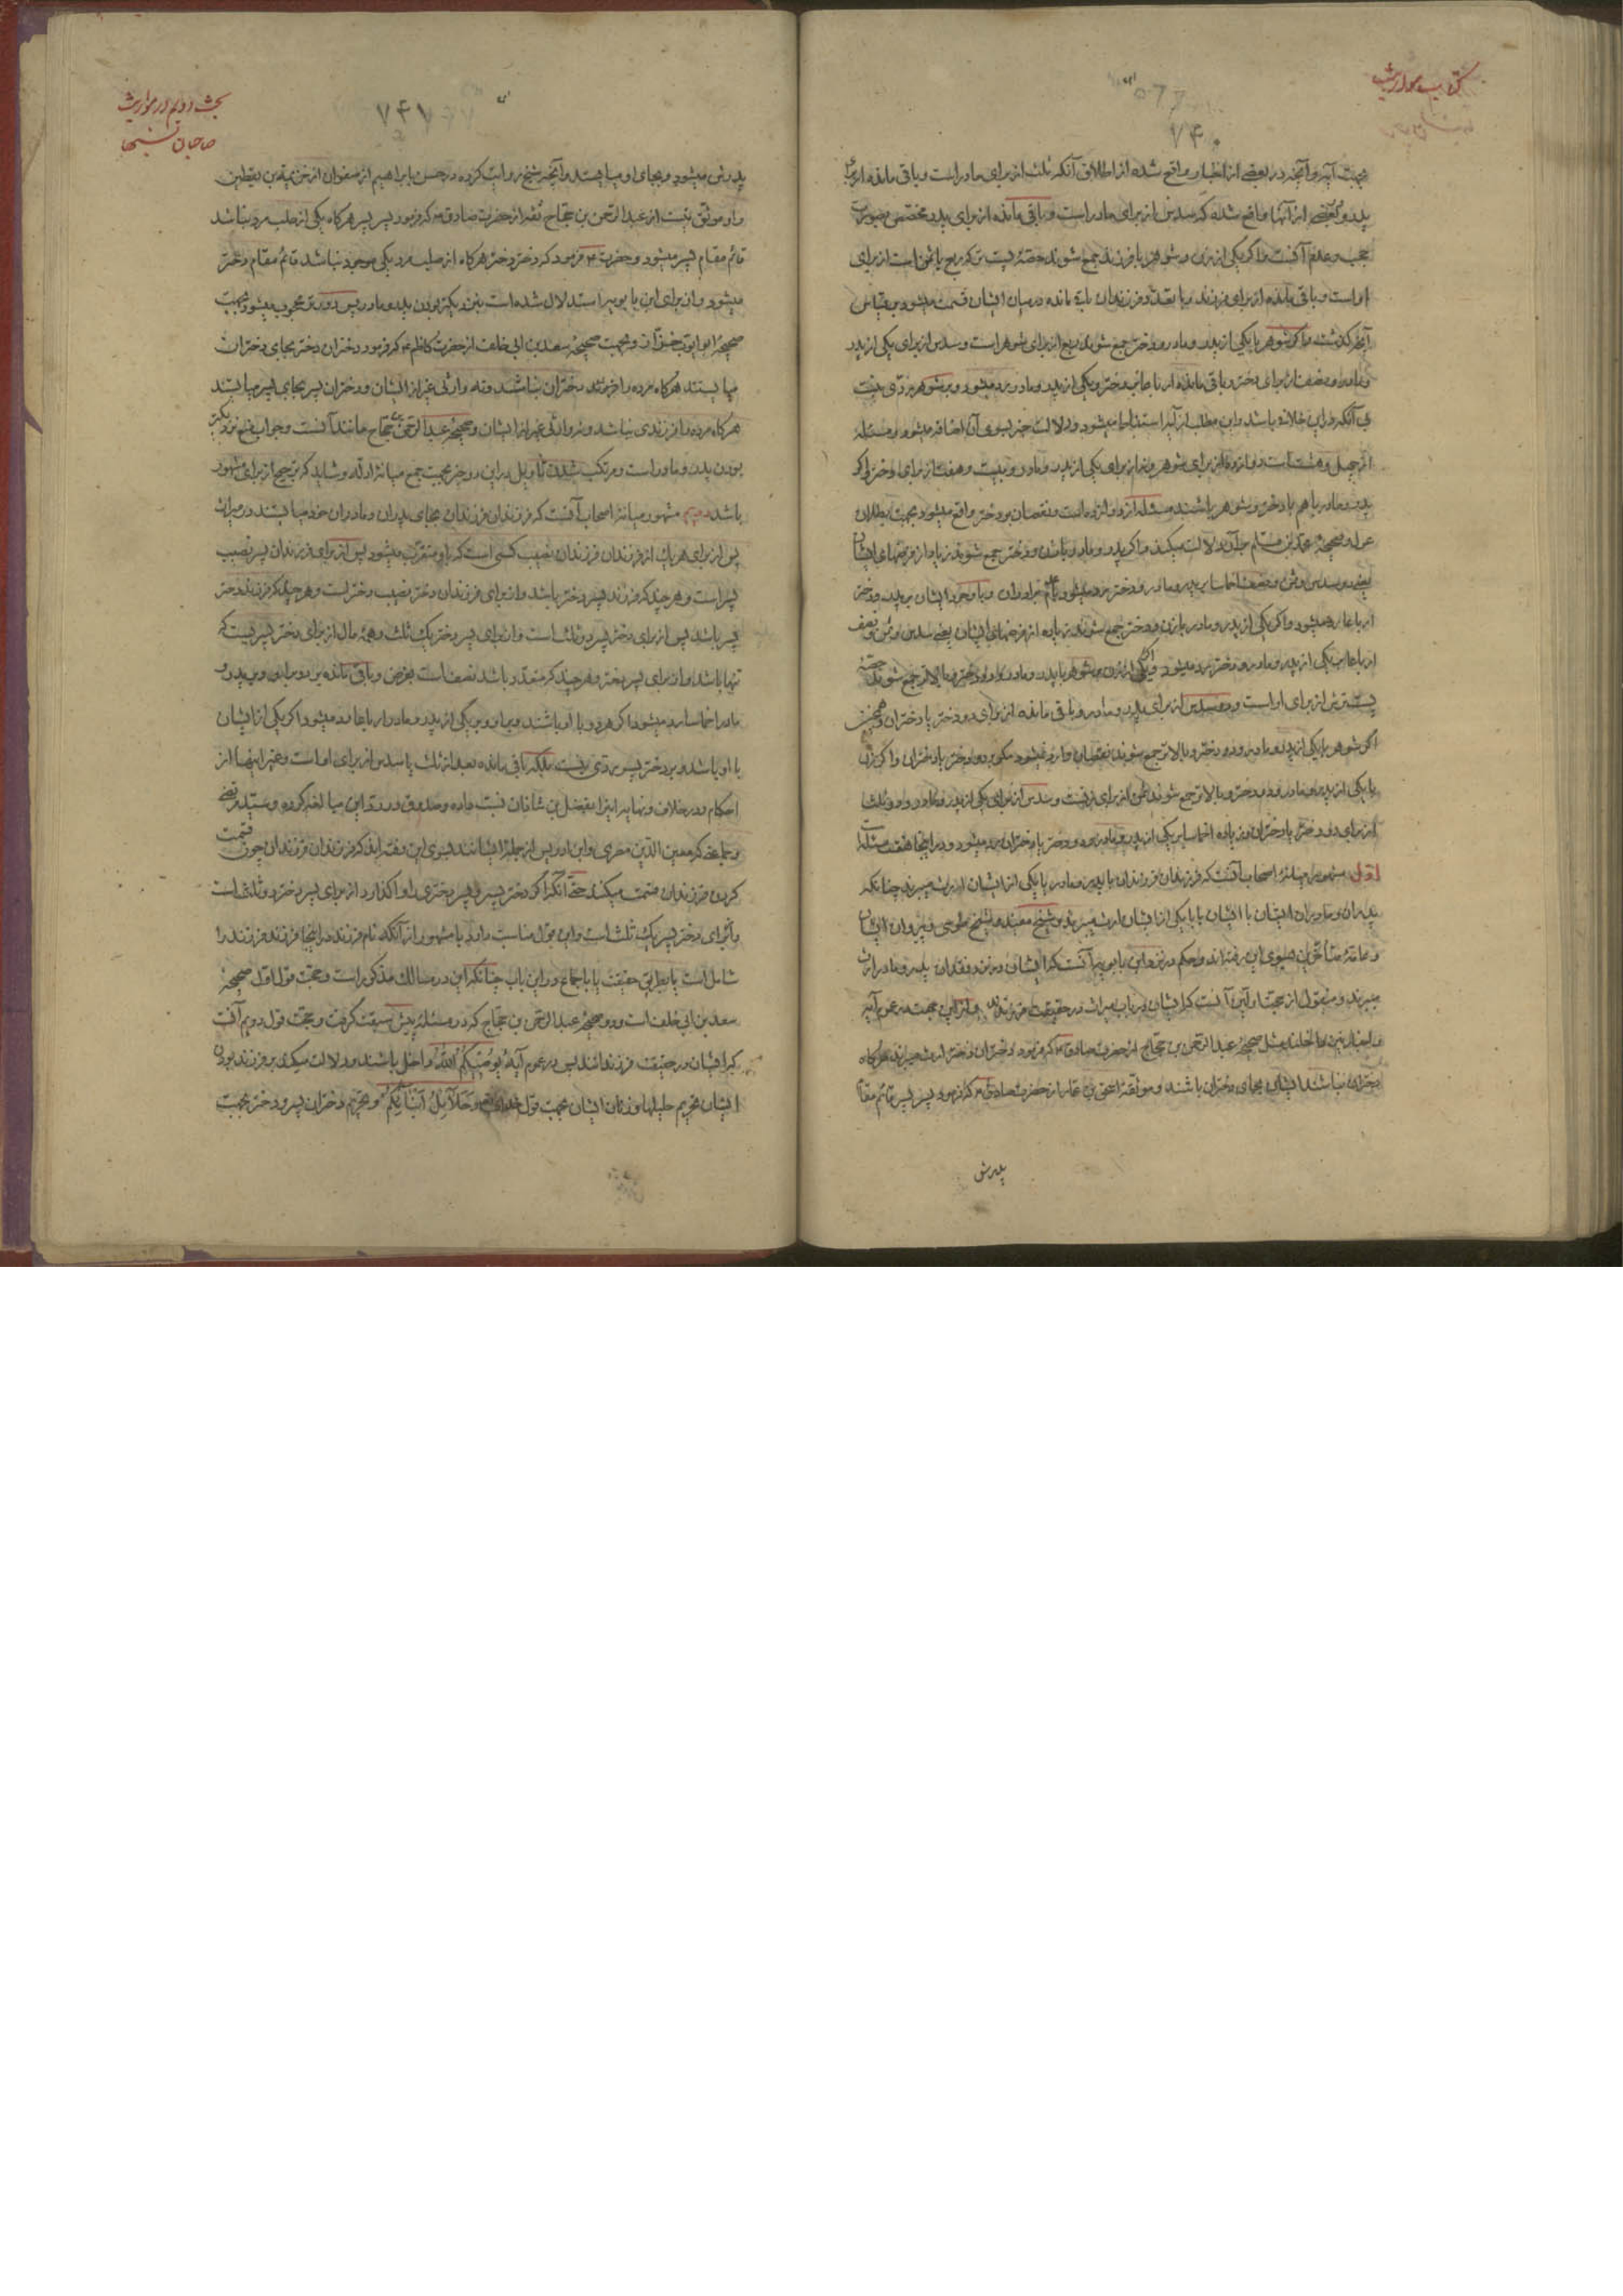 کتاب مواریث
۷۴۰
بجهت آیه و آنچه در بعضی از اخبار واقع شده از اطلاق آنکه ثلث از برای مادر است و باقی مانده از برای
پدر و بعضی از آنها واقع شده که سدس از برای مادر است و باقی مانده از برای پدر مختص بصورت
حجب و عدم آنست و اگر یکی از زن و شوهر با فرزند جمع شوند حصهٔ پست تر که ربع یا ثمن است از برای
او است و باقی مانده از برای فرزند و با تعدد فرزندان باقی مانده در میان ایشان قسمت میشود بر قیاس
آنچه گذشت و اگر شوهر با یکی از پدر و مادر و دختر جمع شوند ربع از برای شوهر است و سدس از برای یکی از پدر
و مادر و نصف از برای دختر و باقی مانده ارباعا بر دختر و یکی از پدر و مادر رد میشود و بر شوهر ردی نیست
بی آنکه در این خلافی باشد و این مطلب از آیه استفاده میشود و دلالت خبر بسوی آن اضافه میشود و مسئله
از چهل و هشت است دوازده از برای شوهر و نه از برای یکی از پدر و مادر و بیست و هفت از برای دختر و اگر
پدر و مادر با هم با دختر و شوهر باشند مسئله از دوازده است و نقصان بر دختر واقع میشود بجهت بطلان
عول و صحیحهٔ محمد بن مسلم بر آن دلالت میکند و اگر پدر و مادر با زن و دختر جمع شوند زیاده از فرضهای ایشان
یعنی دو سدس و ثمن و نصف اخماسا بر پدر و مادر و دختر رد میشود با عدم برادران و با وجود ایشان بر پدر و دختر
ارباعا رد میشود و اگر یکی از پدر و مادر با زن و دختر جمع شوند زیاده از فرضهای ایشان یعنی سدس و ثمن و نصف
ارباعا بر یکی از پدر و مادر و دختر رد میشود و اگر یکی از زن و شوهر با پدر و مادر و دو دختر و بالاتر جمع شوند حصهٔ
پست ترین از برای او است و دو سدس از برای پدر و مادر و باقی مانده از برای دو دختر یا دختران و همچنین
اگر شوهر با یکی از پدر و مادر و دو دختر و بالاتر جمع شوند نقصان وارد نمیشود مگر بر دو دختر یا دختران و اگر زن
با یکی از پدر و مادر و دو دختر و بالاتر جمع شوند ثمن از برای زنست و سدس از برای یکی از پدر و مادر و دو ثلث
از برای دو دختر یا دختران و زیاده اخماسا بر یکی از پدر و مادر و دو دختر یا دختران رد میشود و در اینجا هفت مسئله است
اول مشهور میانهٔ اصحاب آنست که فرزندان فرزندان با پدر و مادر یا یکی از ایشان ارث میبرند چنانکه
پدران و مادران ایشان با ایشان یا با یکی از ایشان ارث میبرند و شیخ مفید و شیخ طوسی و پیروان ایشان
و عامهٔ متأخرین بسوی این رفته اند و حکم در نزد ابن بابویه آنست که ایشان در نزد فقدان پدر و مادر ارث
میبرند و منقول از حجت اولین آنست که ایشان در باب میراث در حقیقت فرزندند و از این جهت در عموم آیه
و اخبار نیز داخلند مثل صحیحهٔ عبد الرحمن بن حجاج از حضرت صادق ع که فرمود دختران دختر ارث میبرند هرگاه
دختران نباشند ایشان بجای دختران باشند و موثقهٔ اسحق بن عمار از حضرت صادق ع که فرمود پسر پسر قائم مقام
پدرش
بحث دویم در مواریث
صاحبان نسبها
۷۴۱
پدرش میشود و بجای او میایستد و آنچه شیخ روایت کرده در حسن بابراهیم از صفوان از خزیمة بن یقطین
و او موثق نیست از عبد الرحمن بن حجاج ثقه از حضرت صادق ع که فرمود پسر پسر هرگاه یکی از صلب مرد نباشد
قائم مقام پسر میشود و حضرت ع فرمود که دختر دختر هرگاه از صلب مرد یکی موجود نباشد قائم مقام دختر
میشود و از برای ابن بابویه استدلال شده است بنزدیکتر بودن پدر و مادر پس دورتر محجوب میشود و بجهت
صحیحهٔ ابو ایوب خزاز و بجهت صحیحهٔ سعد بن ابی خلف از حضرت کاظم ع که فرمود دختران دختر بجای دختران
میایستند هرگاه مرده را فرزند دختران نباشند و نه وارثی غیر از ایشان و دختران پسر بجای پسر میایستند
هرگاه مرده را فرزندی نباشد و نه وارثی غیر از ایشان و صحیحهٔ عبد الرحمن بن حجاج مانند آنست و جواب منع نزدیکتر
بودن پدر و مادر است و مرتکب شدن تأویل در این دو خبر بجهت جمع میانهٔ ادله و شاید که ترجیح از برای مشهور
باشد دویم مشهور میانهٔ اصحاب آنست که فرزندان فرزندان بجای پدران و مادران خود میایستند در میراث
پس از برای هر یک از فرزندان فرزندان نصیب کسی است که باو متقرب میشود پس از برای فرزندان پسر نصیب
پسر است و هر چند که فرزند پسر دختر باشد و از برای فرزندان دختر نصیب دختر است و هر چند که فرزند دختر
پسر باشد پس از برای دختر پسر دو ثلث است و از برای پسر دختر یک ثلث و همهٔ مال از برای دختر پسریست که
تنها باشد و از برای پسر دختر و هر چند که متعدد باشد نصف است بفرض و باقی مانده برد و برابر و بر پدر و
مادر اخماسا رد میشود اگر هر دو با او باشند و بر او و بر یکی از پدر و مادر ارباعا رد میشود اگر یکی از ایشان
با او باشد و بر دختر پسر ردی نیست بلکه باقی مانده بعد از ثلث یا سدس از برای او است و غیر اینها از
احکام و در خلاف و نهایه اینرا بفضل بن شاذان نسبت داده و صدوق در رد این مبالغه کرده و سید مرتضی
و جماعتی که معین الدین مصری و ابن ادریس از جملهٔ ایشانند بسوی این رفته اند که فرزندان فرزندان چون قسمت
کردن فرزندان قسمت میکنند حتی آنکه اگر دختر پسر و پسر دختری را واگذارد از برای پسر دختر دو ثلث است
و از برای دختر پسر یک ثلث است و این قول مناسبت دارد با مشهور از آنکه نام فرزند در اینجا فرزند فرزند را
شامل است یا بطریق حقیقت یا باجماع در این باب چنانکه این در مسالک مذکور است و حجت قول اول صحیحهٔ
سعد بن ابی خلف است و دو صحیحهٔ عبد الرحمن بن حجاج که در مسئلهٔ پیش سبقت گرفت و حجت قول دویم آنست
که ایشان در حقیقت فرزندانند پس در عموم آیهٔ یُوصیکُمُ اللهُ داخل باشند و دلالت میکند بر فرزند بودن
ایشان تحریم حلیلها و زنان ایشان بجهت قول وَحَلآئِلُ اَبْنائِکُمْ و تحریم دختران پسر و دختر بجهت